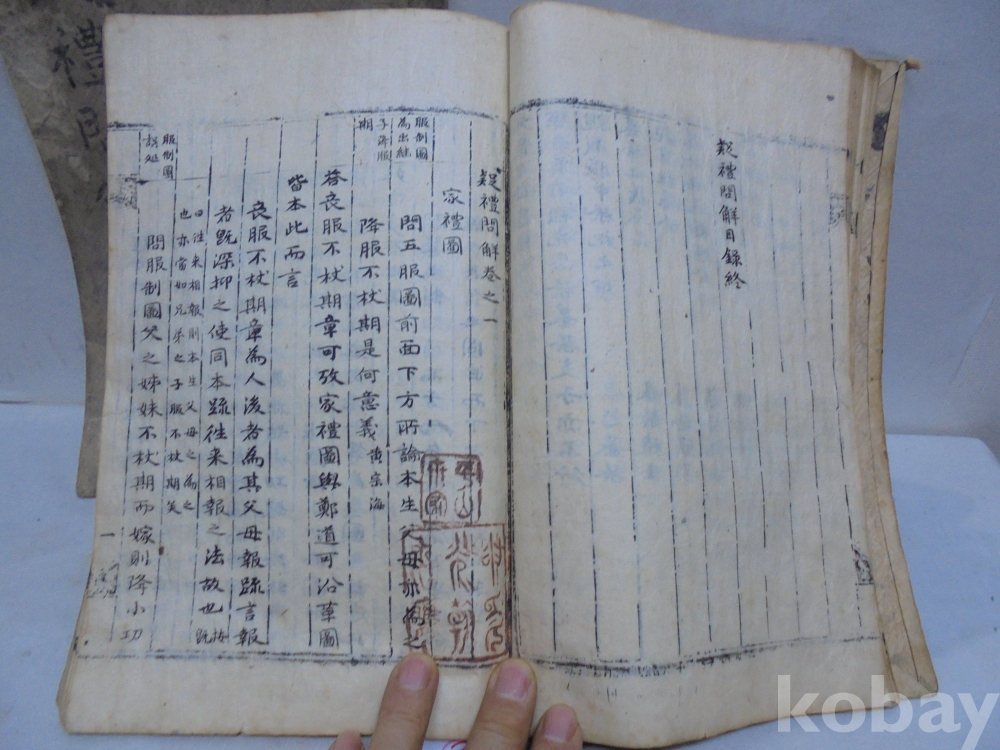 疑禮問解目錄終
疑禮問解卷之一
家禮圖
服制圖
為出繼
子降服
期
問五服圖前面下方所論本生父母亦為之
降服不杖期是何意義黃宗海
答喪服不杖期章可攷家禮圖與鄭道可沿革圖
皆本此而言
喪服不杖期章為人後者為其父母報疏言報
者既深抑之使同本疏往來相報之法故也按既
曰往來相報則本生父母之為之
也亦當如兄弟之子服不杖期矣
服制圖
誤處
問服制圖父之姊妹不杖期而嫁則降小功
一
禮問
kobay